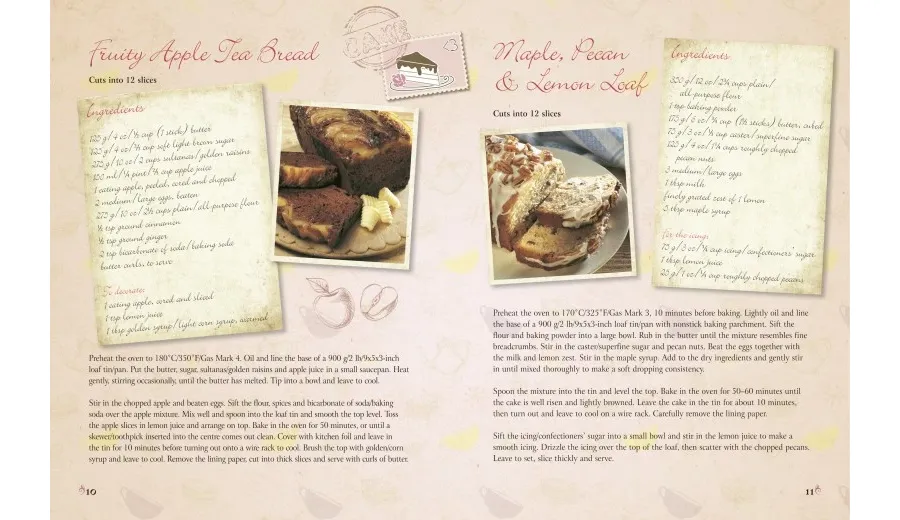 Fruity Apple Tea Bread
Cuts into 12 slices
CAKE
Ingredients
125 g/4 oz/½ cup (1 stick) butter
125 g/4 oz/⅔ cup soft light brown sugar
275 g/10 oz/2 cups sultanas/golden raisins
150 ml/¼ pint/⅔ cup apple juice
1 eating apple, peeled, cored and chopped
2 medium/large eggs, beaten
275 g/10 oz/2½ cups plain/all-purpose flour
½ tsp ground cinnamon
½ tsp ground ginger
2 tsp bicarbonate of soda/baking soda
butter curls, to serve
To decorate:
1 eating apple, cored and sliced
1 tsp lemon juice
1 tbsp golden syrup/light corn syrup, warmed
Preheat the oven to 180°C/350°F/Gas Mark 4. Oil and line the base of a 900 g/2 lb/9x5x3-inch
loaf tin/pan. Put the butter, sugar, sultanas/golden raisins and apple juice in a small saucepan. Heat
gently, stirring occasionally, until the butter has melted. Tip into a bowl and leave to cool.
Stir in the chopped apple and beaten eggs. Sift the flour, spices and bicarbonate of soda/baking
soda over the apple mixture. Mix well and spoon into the loaf tin and smooth the top level. Toss
the apple slices in lemon juice and arrange on top. Bake in the oven for 50 minutes, or until a
skewer/toothpick inserted into the centre comes out clean. Cover with kitchen foil and leave in
the tin for 10 minutes before turning out onto a wire rack to cool. Brush the top with golden/corn
syrup and leave to cool. Remove the lining paper, cut into thick slices and serve with curls of butter.
10
Maple, Pecan
& Lemon Loaf
Cuts into 12 slices
Ingredients
350 g/12 oz/2¾ cups plain/
all-purpose flour
1 tsp baking powder
175 g/6 oz/¾ cup (1½ sticks) butter, cubed
75 g/3 oz/⅓ cup caster/superfine sugar
125 g/4 oz/1¼ cups roughly chopped
pecan nuts
3 medium/large eggs
1 tbsp milk
finely grated zest of 1 lemon
5 tbsp maple syrup
For the icing:
75 g/3 oz/¾ cup icing/confectioners' sugar
1 tbsp lemon juice
25 g/1 oz/¼ cup roughly chopped pecans
Preheat the oven to 170°C/325°F/Gas Mark 3, 10 minutes before baking. Lightly oil and line
the base of a 900 g/2 lb/9x5x3-inch loaf tin/pan with nonstick baking parchment. Sift the
flour and baking powder into a large bowl. Rub in the butter until the mixture resembles fine
breadcrumbs. Stir in the caster/superfine sugar and pecan nuts. Beat the eggs together with
the milk and lemon zest. Stir in the maple syrup. Add to the dry ingredients and gently stir
in until mixed thoroughly to make a soft dropping consistency.
Spoon the mixture into the tin and level the top. Bake in the oven for 50–60 minutes until
the cake is well risen and lightly browned. Leave the cake in the tin for about 10 minutes,
then turn out and leave to cool on a wire rack. Carefully remove the lining paper.
Sift the icing/confectioners' sugar into a small bowl and stir in the lemon juice to make a
smooth icing. Drizzle the icing over the top of the loaf, then scatter with the chopped pecans.
Leave to set, slice thickly and serve.
11